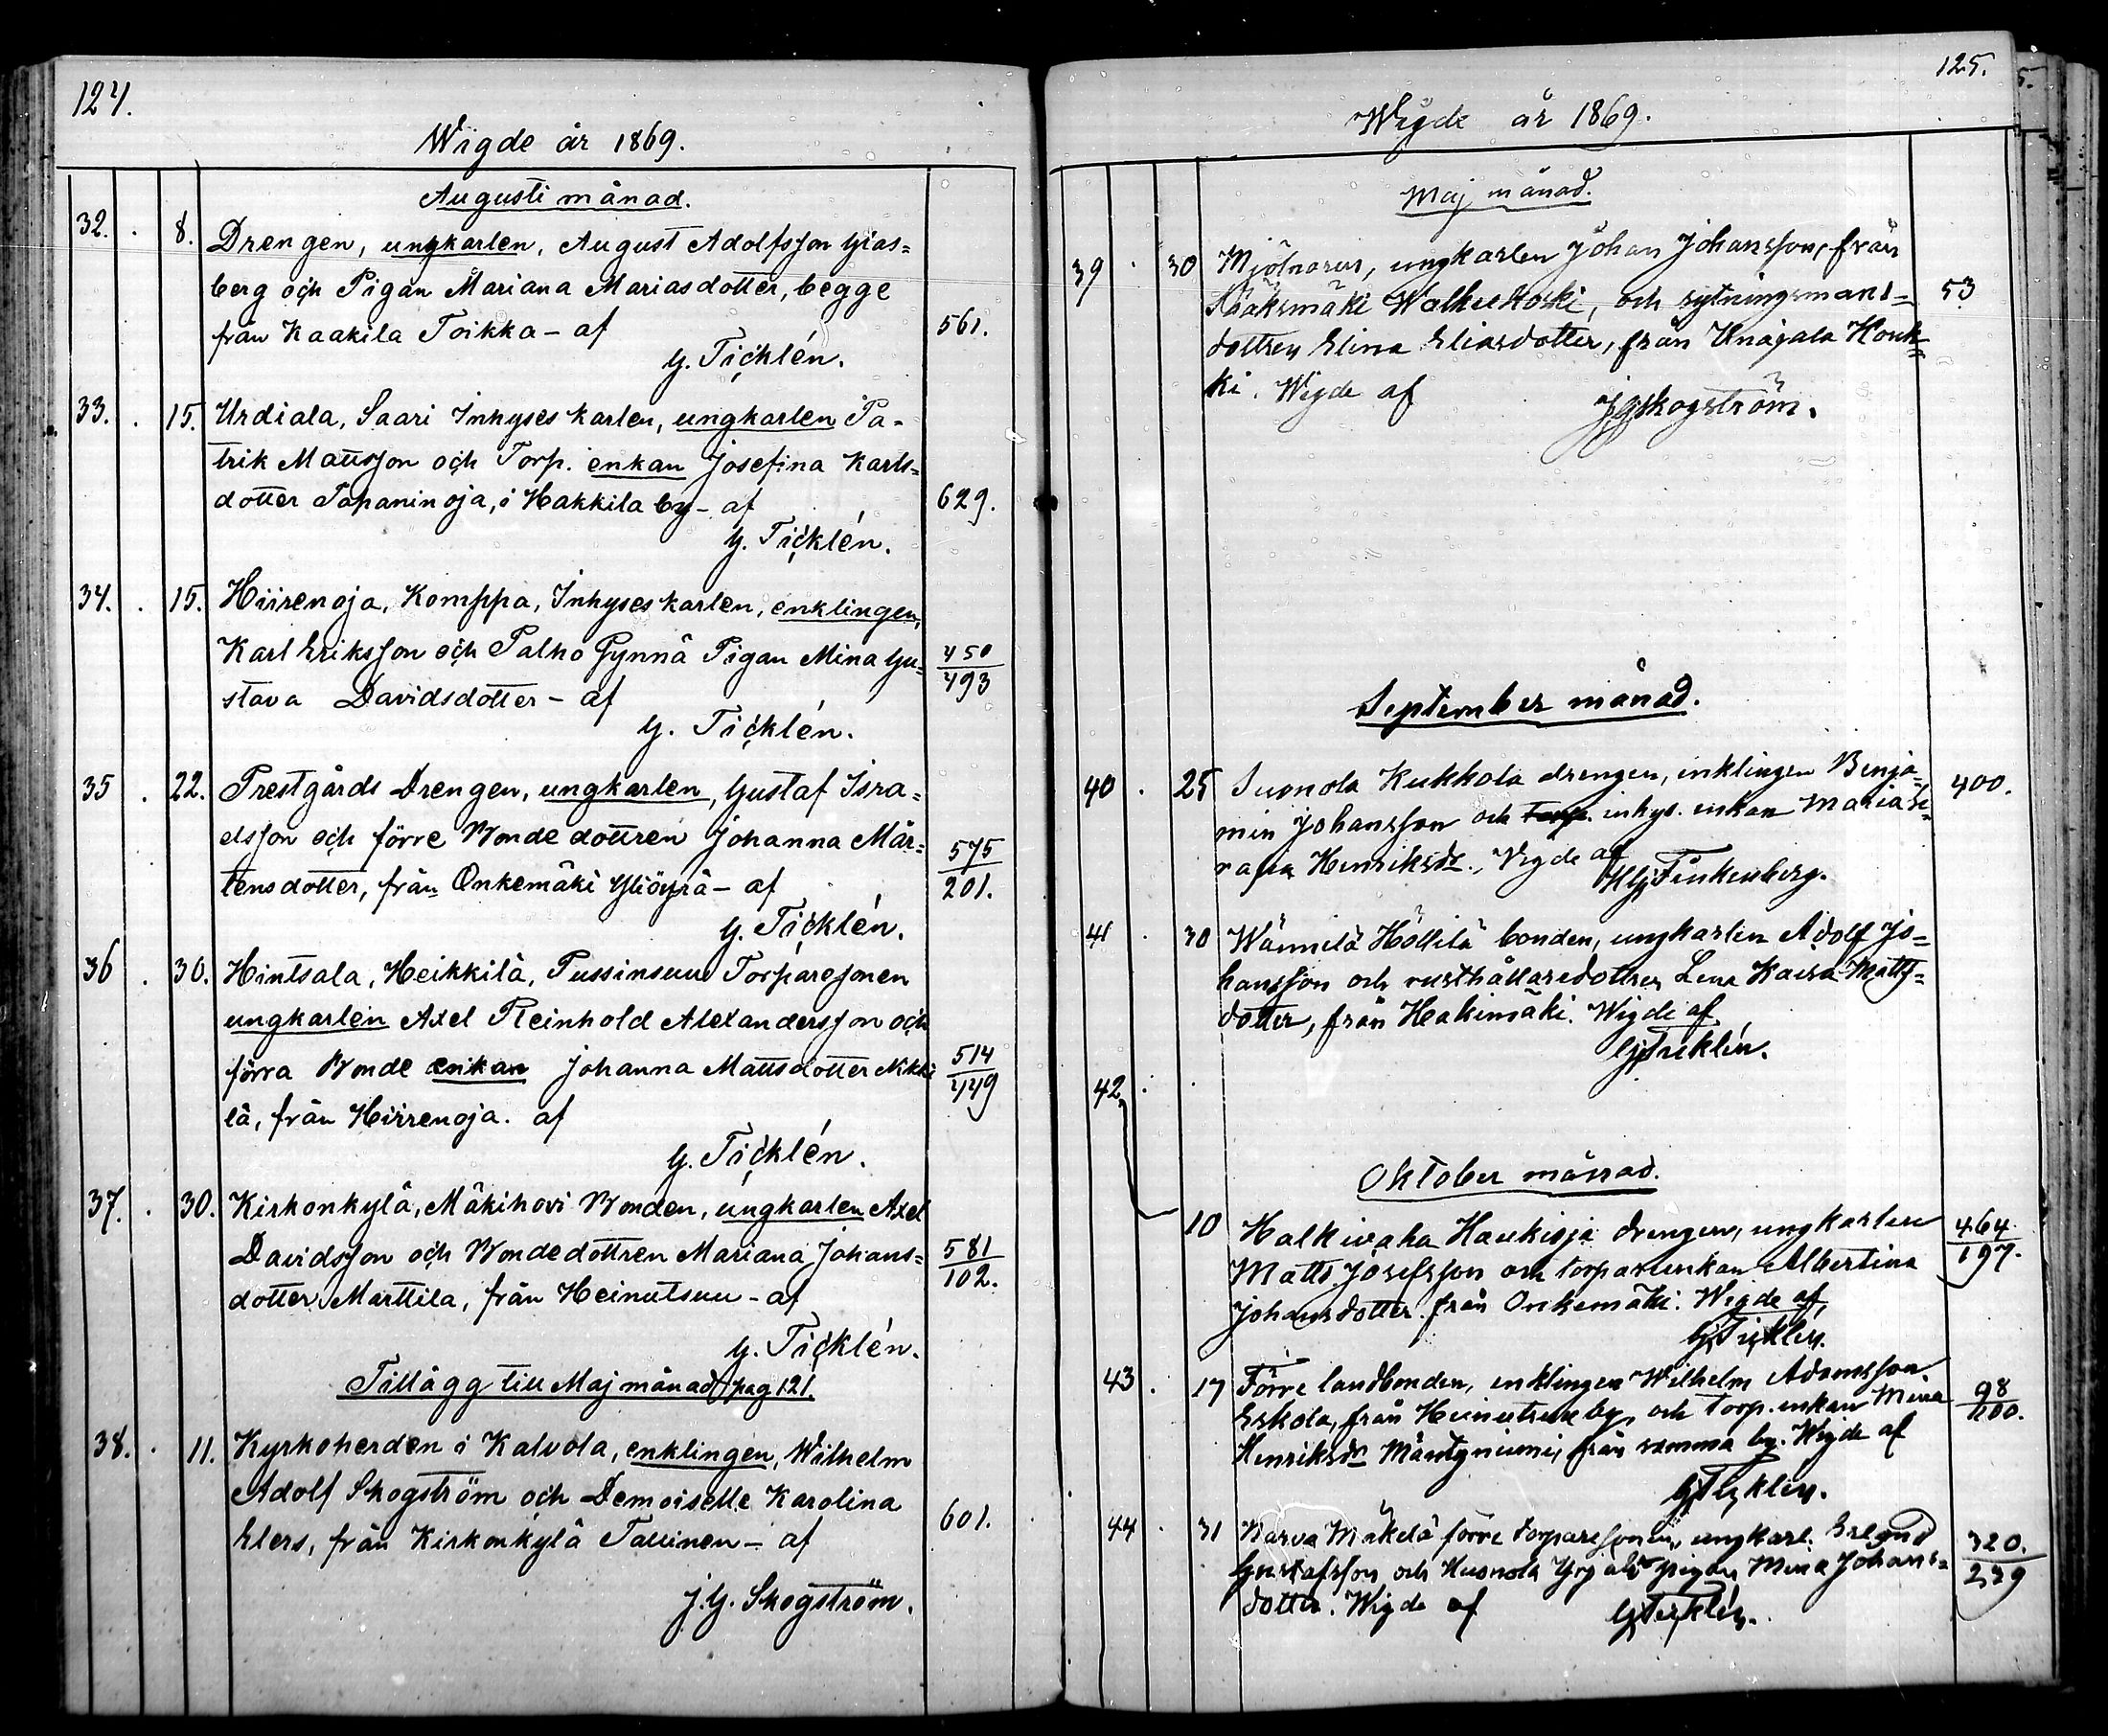 124.
Wigde år 1869.
Augusti månad.
32. 8. Drengen, ungkarlen, August Adolfsson Glas=
berg och Pigan Mariana Mariasdotter, begge
från Kaakila Toikka - af 561.
G. Ticklén.
33. 15. Urdiala, Saari Inhyses karlen, ungkarlen Pa-
trik Mattsson och Torp. enkan Josefina Karls=
dotter Tapaninoja, i Hakkila by - af 629.
G. Ticklén.
34. 15. Hiirenoja, Komppa, Inhyses karlen, enklingen,
Karl Eriksson och Palho Pynnä Pigan Mina Gu= 450
stava Davidsdotter - af 493
G. Ticklén.
35 22. Prestgårds Drengen, ungkarlen, Gustaf Isra=
elsson och förre Bonde dottren Johanna Mår= 575
tensdotter, från Onkemäki Yliöyrä - af 201.
G. Ticklén.
36 30. Hintsala, Heikkilä, Pussinsuu Torparesonen
ungkarlen Axel Reinhold Alexandersson och
förra Bonde enkan Johanna Mattsdotter Nikki 514
lä, från Hiirenoja. af 449
G. Ticklén.
37. 30. Kirkonkylä, Mäkihovi Bonden, ungkarlen Axel
Davidsson och Bondedottren Mariana Johans= 581
dotter Marttila, från Heinutsuu - af 102.
G. Ticklén.
Tillägg till Maj månad pag 121.
38. 11. Kyrkoherden i Kalvola, enklingen, Wilhelm
Adolf Skogström och Demoiselle Karolina
Elers, från Kirkonkylä Tallinen - af 601.
J. G. Skogström.
125.
Wigde år 1869.
Maj månad.
39 30 Mjölnaren, ungkarlen Johan Johansson, från
Sääksmäki Walkiakoski, och sytningsmans= 53
dottren Elina Eliasdotter, från Unajala Houk=
ki. Wigde af JGSkogström.
September månad.
40 25 Suonola Kukkola drengen, enklingen Benja= 400.
min Johansson och inhys. enkan Maria Se=
rafia Henriksdr. Vigde af
Finkenberg.
41 30 Wännilä Höllilä bonden, ungkarlen Adolf Jo=
hansson och rusthållaredottren Lena Kaisa Matts=
dotter, från Hakimäki. Wigde af
GTicklén.
42
Oktober månad.
10 Halkivaha Haukioja drengen, ungkarlen 464
Matts Josefsson och torpareenkan Albertina 197.
Johansdotter från Onkemäki. Wigde af
GTicklén.
43. 17 Förre landbonden, enklingen Wilhelm Adamsson
Eskola, från Heinutsuu by, och Torp. enkan Mina 98
Henriksdr Mäntyniemi, från samma by. Wigde af 100.
GTicklén.
44 31 Narva Mäkelä förre torparesonen, ungkarl. Erland 320.
Gustafsson och Huonola Yrjälä pigan Mina Johans= 239
dotter. Wigde af GTicklén.